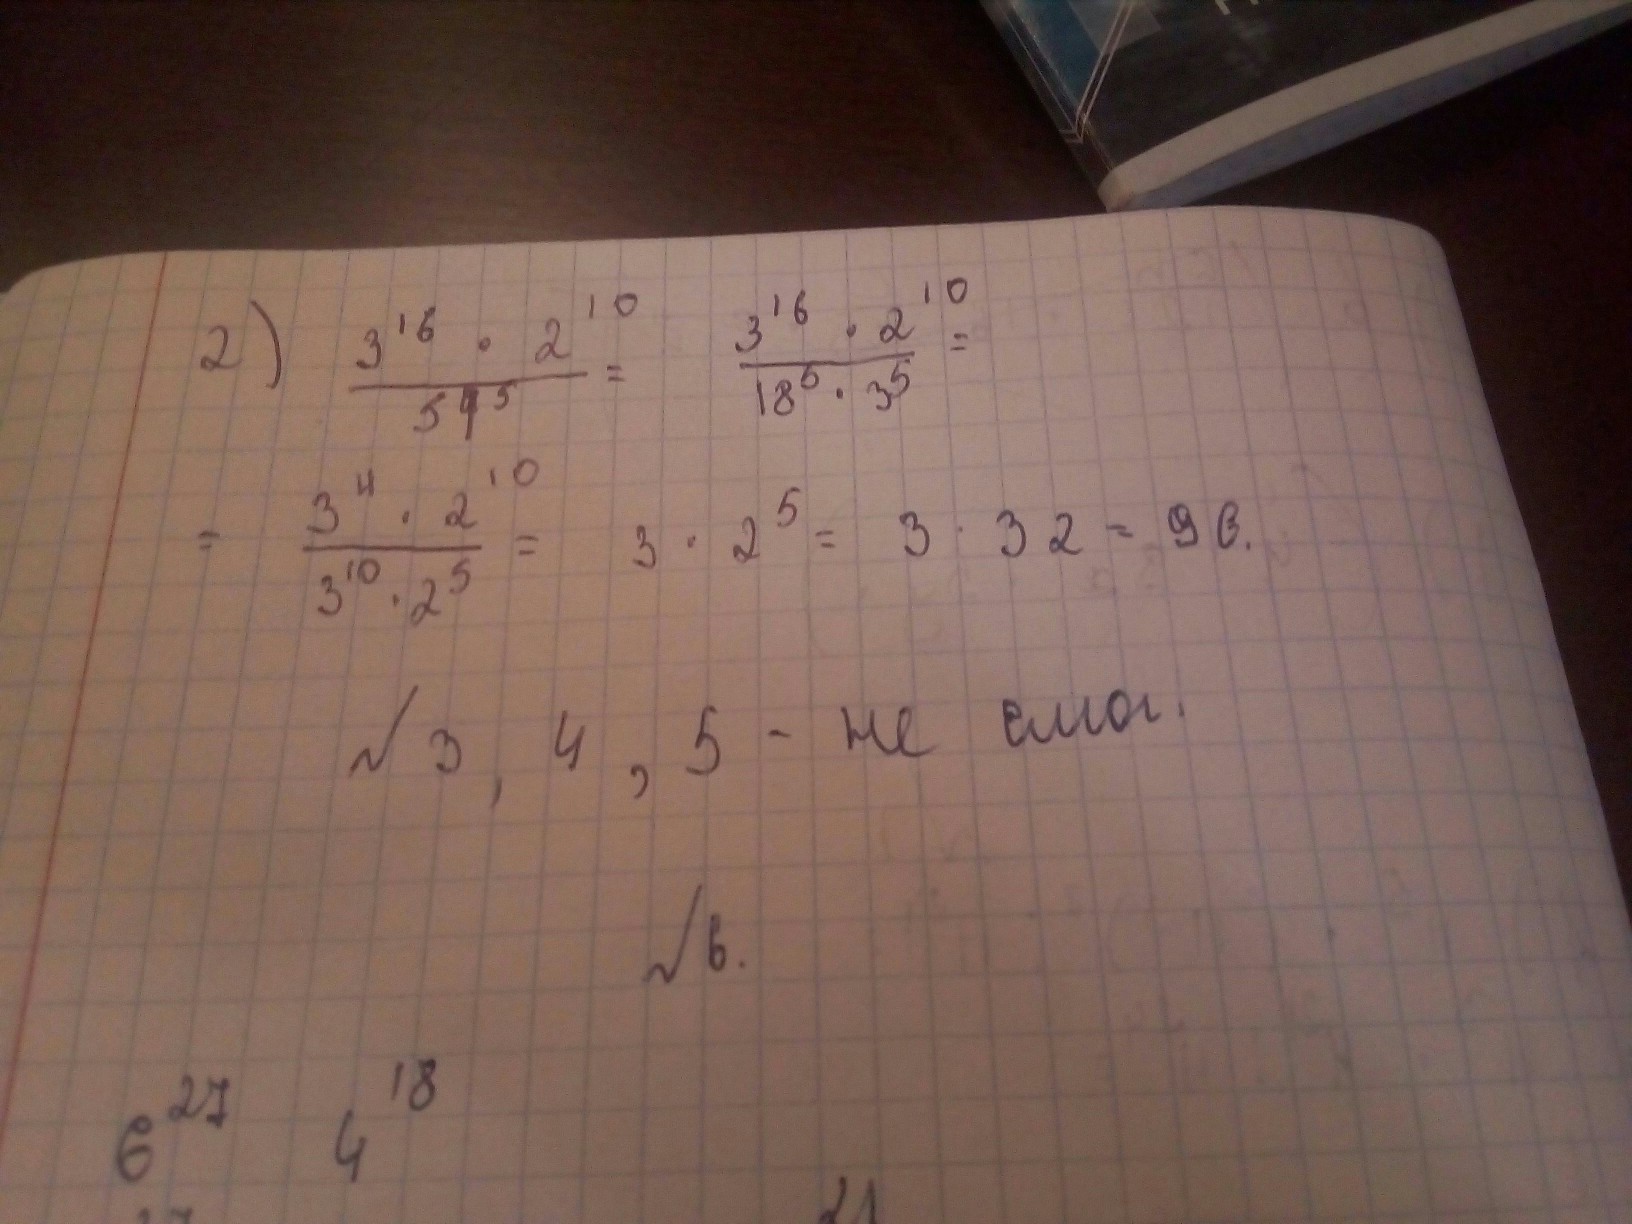 2) 3^16 · 2^10 / 54^5 = 3^16 · 2^10 / 18^5 · 3^5 =
= 3^4 · 2^10 / 3^10 · 2^5 = 3 · 2^5 = 3 · 32 = 96.
№ 3, 4, 5 - не смог.
№ 6.
6^27 4^18
27 21